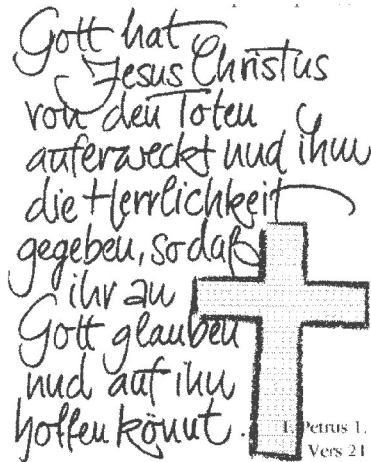 Gott hat
Jesus Christus
von den Toten
auferweckt und ihm
die Herrlichkeit
gegeben, so daß
ihr an
Gott glauben
und auf ihn
hoffen könnt.
1. Petrus 1,
Vers 21